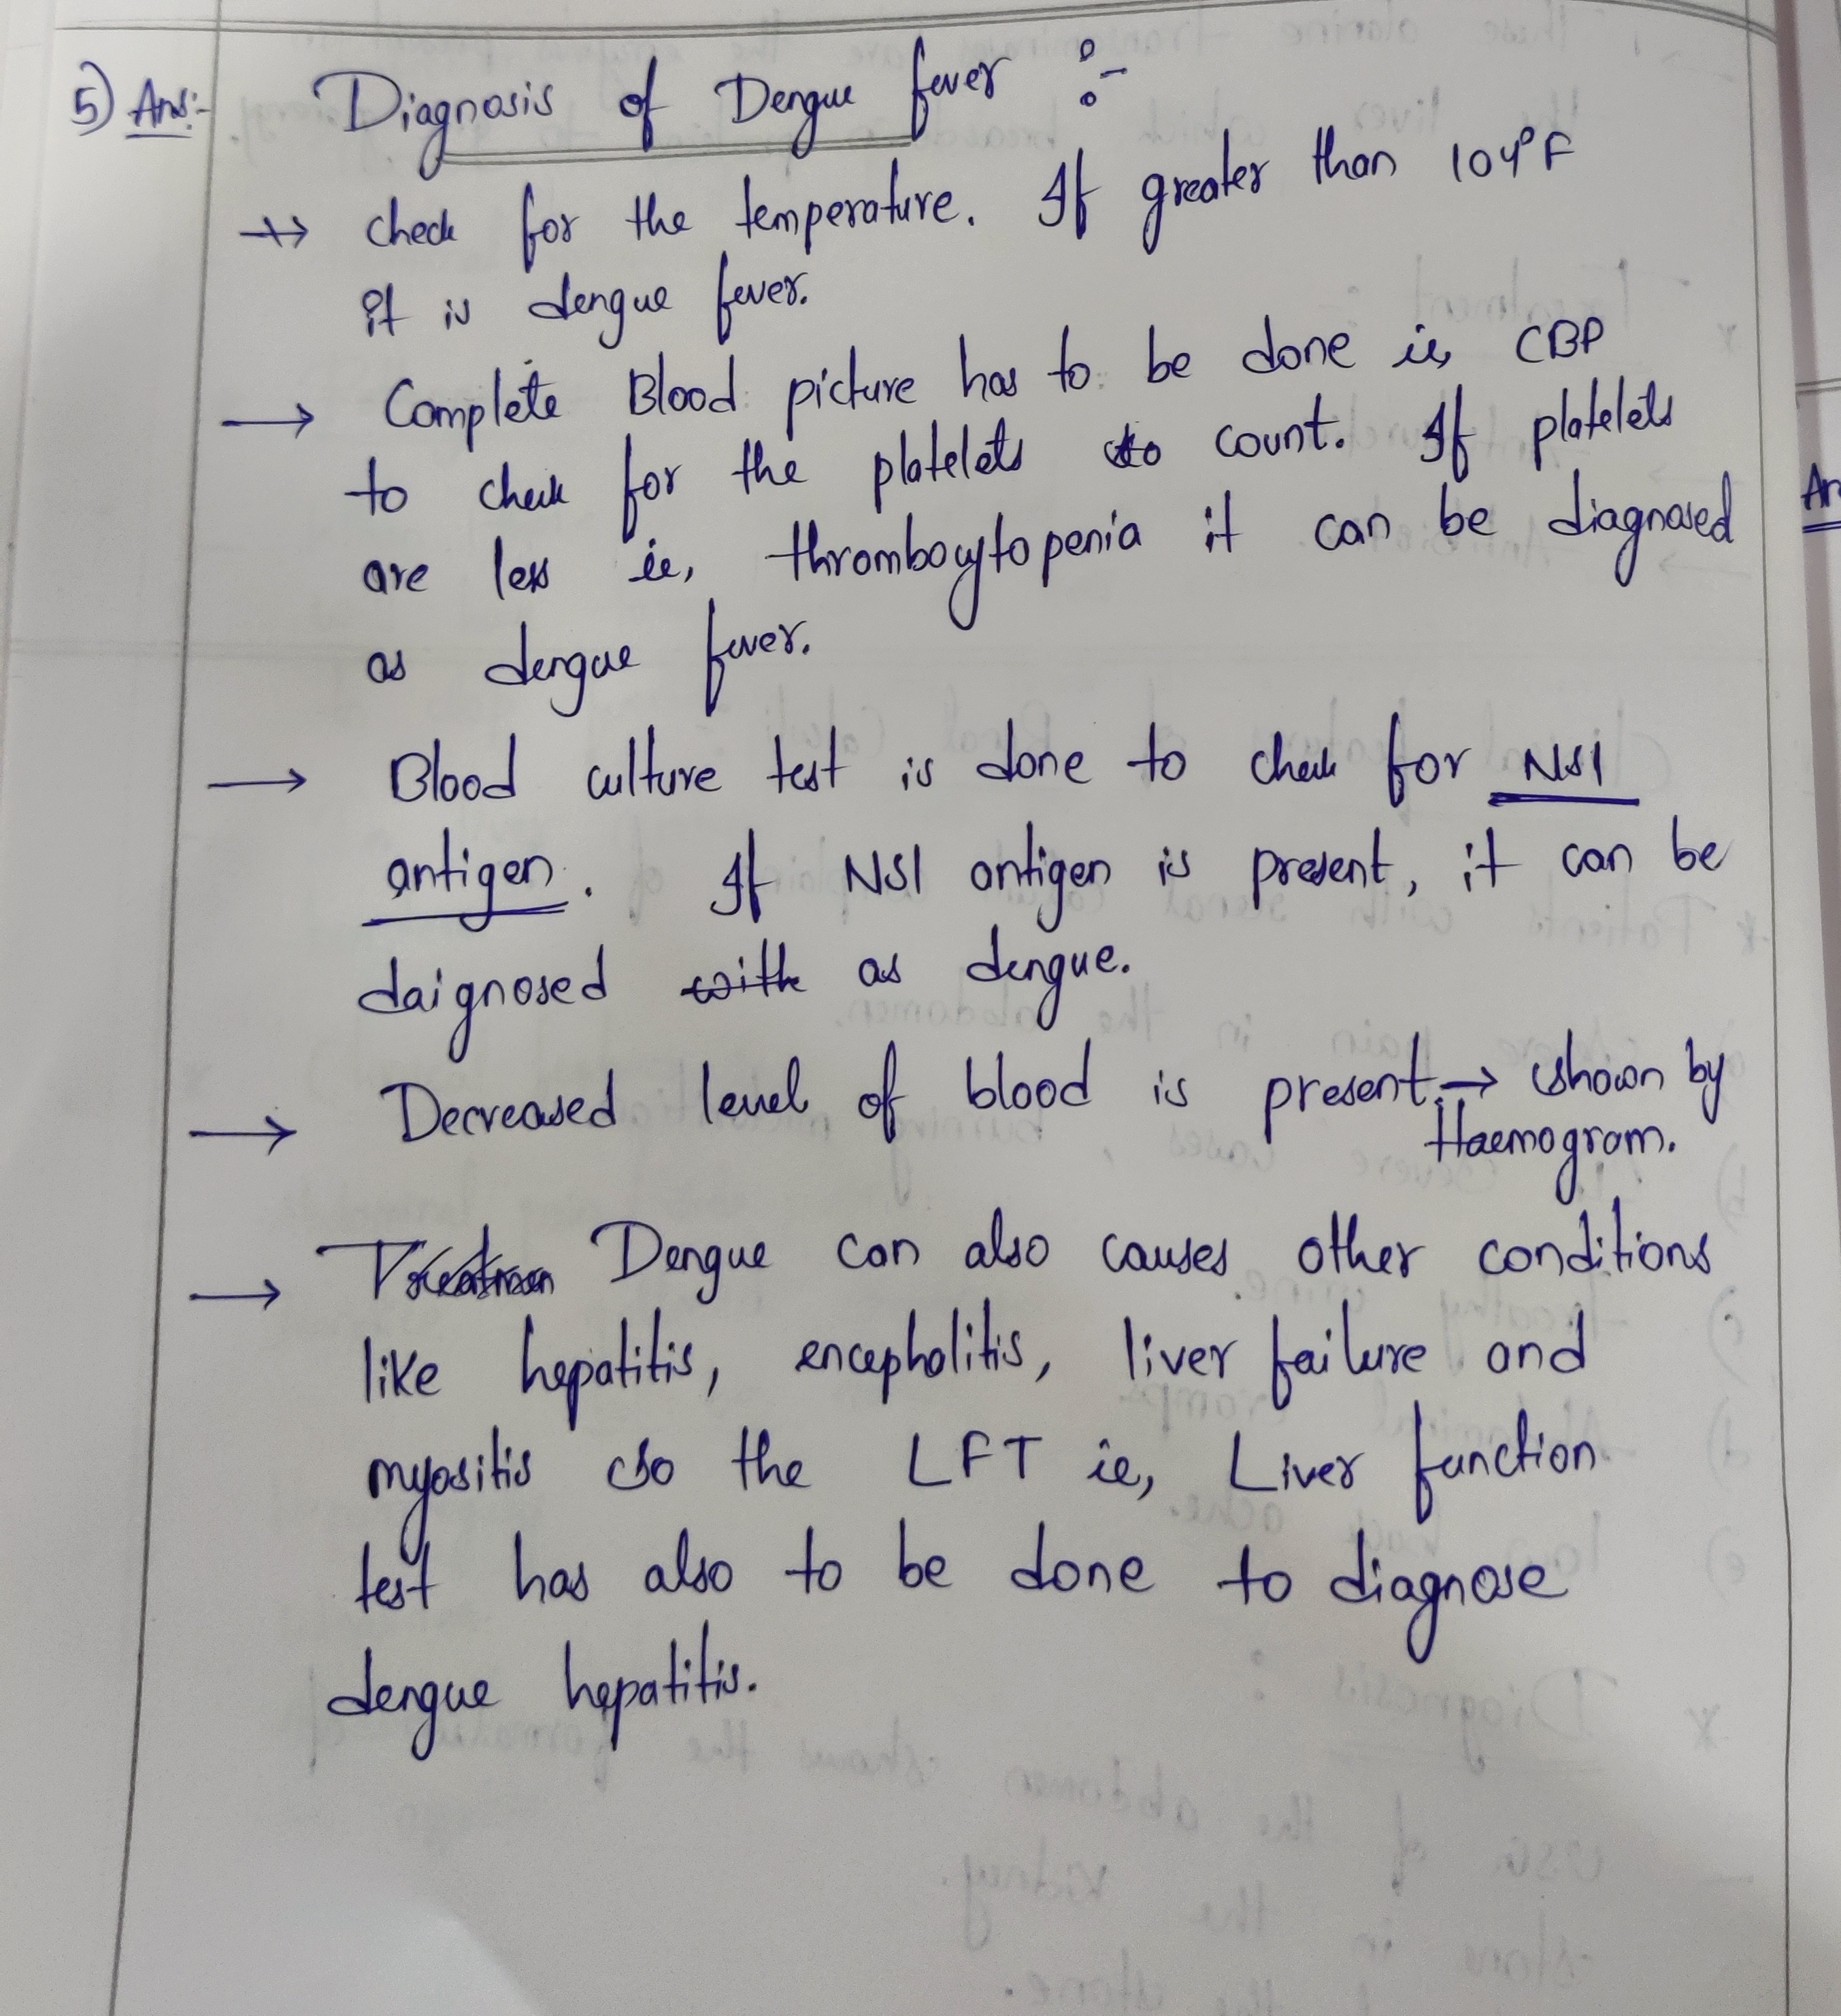 5) Ans:- Diagnosis of Dengue fever :-
→ check for the temperature. If greater than 104°F
it is dengue fever.
→ Complete Blood picture has to be done ie, CBP
to check for the platelets count. If platelets
are less ie, thrombocytopenia it can be diagnosed
as dengue fever.
→ Blood culture test is done to check for NS1
antigen. If NS1 antigen is present, it can be
daignosed with as dengue.
→ Decreased level of blood is present → shown by
Haemogram.
→ Dengue can also causes other conditions
like hepatitis, encephalitis, liver failure and
myositis so the LFT ie, Liver function
test has also to be done to diagnose
dengue hepatitis.